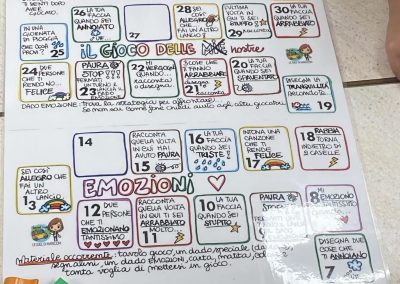 TI SENTI DOPO
AVER
GIOCATO
26 LA TUA
FACCIA
QUANDO SEI
ANNOIATO
27
28 SEI COSÌ
ALLEGRO CHE
FAI UN
ALTRO
LANCIO!
VOLTA IN
CUI TI SEI
STUPITO
29
30 LA TUA
FACCIA
QUANDO SEI
ARRABBIATO
IN UNA
GIORNATA
DI PIOGGIA
CHE COSA
FARESTI?
25
IL GIOCO DELLE nostre
24 DUE
PERSONE
CHE TI
RENDONO
FELICE
PAURA
STOP!!!
FERMATI
23
22 MI
VERGOGNO
QUANDO...
racconta o
disegna
COSE CHE
TI FANNO
ARRABBIARE
disegna
21 o racconta
20 LA TUA
FACCIA
QUANDO SEI
SPAVENTATO
DISEGNA LA
TRANQUILLITÀ
19
DADO EMOZIONE: trova la strategia per affrontare
Se non sai come fare chiedi aiuto agli altri giocatori
14
RACCONTA
QUELLA VOLTA
IN CUI HAI
AVUTO PAURA
15
16 LA TUA
FACCIA
QUANDO SEI
TRISTE!
INTONA UNA
CANZONE
CHE TI
RENDE
FELICE
17
18 RABBIA
TORNA
INDIETRO DI
5 CASELLE
SEI COSÌ
ALLEGRO CHE
FAI UN
ALTRO
LANCIO
13
EMOZIONI
12 DUE
PERSONE
CHE TI
EMOZIONANO
TANTISSIMO
RACCONTA
QUELLA VOLTA
IN CUI TI SEI
ARRABBIATO
MOLTO...
11
10 LA TUA
FACCIA
QUANDO SEI
STUPITO
PAURA
STOP
8 MI
EMOZIONO
TANTISSIMO
DISEGNA DUE
COSE CHE
TI ANNOIANO
7
Materiale occorrente: tavola gioco, un dado speciale (da
segnalini, un dado EMOZIONI, carta, matita,
tanta voglia di mettersi in gioco